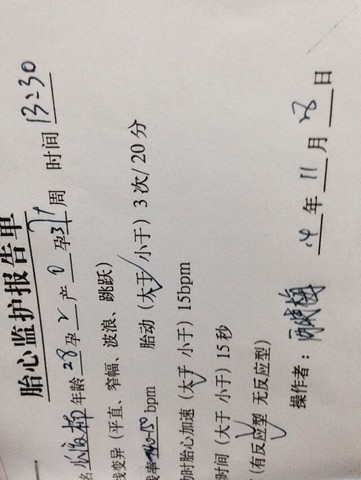 胎心监护报告单
名 年龄 28 孕 2 产 0 孕 37+ 周 时间 13:30
线变异（平直、窄幅、波浪、跳跃）
线率 140-150 bpm 胎动（大于 小于）3 次/ 20 分
动时胎心加速（大于 小于）15bpm
时间（大于 小于）15 秒
（有反应型 无反应型）
操作者： 年 11 月 28 日